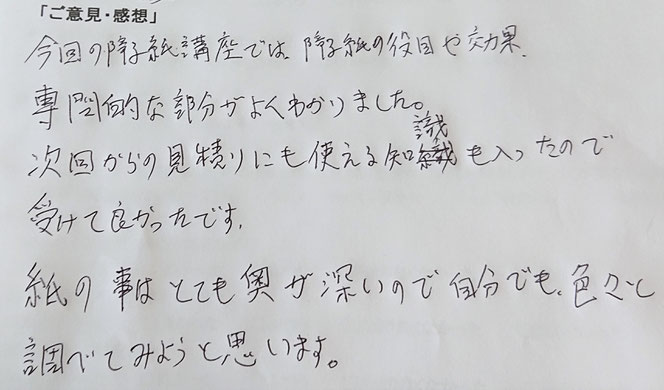 「ご意見・感想」
今回の障子紙講座では、障子紙の役目や効果、
専門的な部分がよくわかりました。
次回からの見積りにも使える知識も入ったので
受けて良かったです。
紙の事はとても奥が深いので自分でも、色々と
調べてみようと思います。